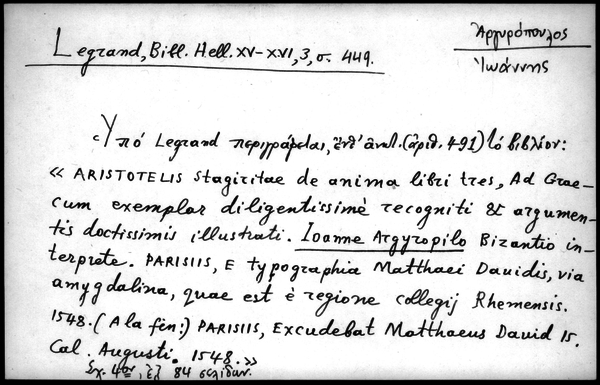 Ἀργυρόπουλος
Ἰωάννης
Legrand, Bibl. Hell. XV-XVI, 3, σ. 449.
Ὑπό Legrand περιγράφεται, (ἀριθ. 491) τό βιβλίον:
« ARISTOTELIS Stagiritae de anima libri tres, Ad Grae-
cum exemplar diligentissimè recogniti & argumen-
tis doctissimis illustrati. Ioanne Argyropilo Bizantio in-
terprete. PARISIIS, E typographia Matthaei Dauidis, via
amygdalina, quae est è regione collegij Rhemensis.
1548. (A la fin:) PARISIIS, Excudebat Matthaeus David 15.
Cal. Augusti. 1548.»
Σχ. 4ον, ἐξ 84 σελίδων.